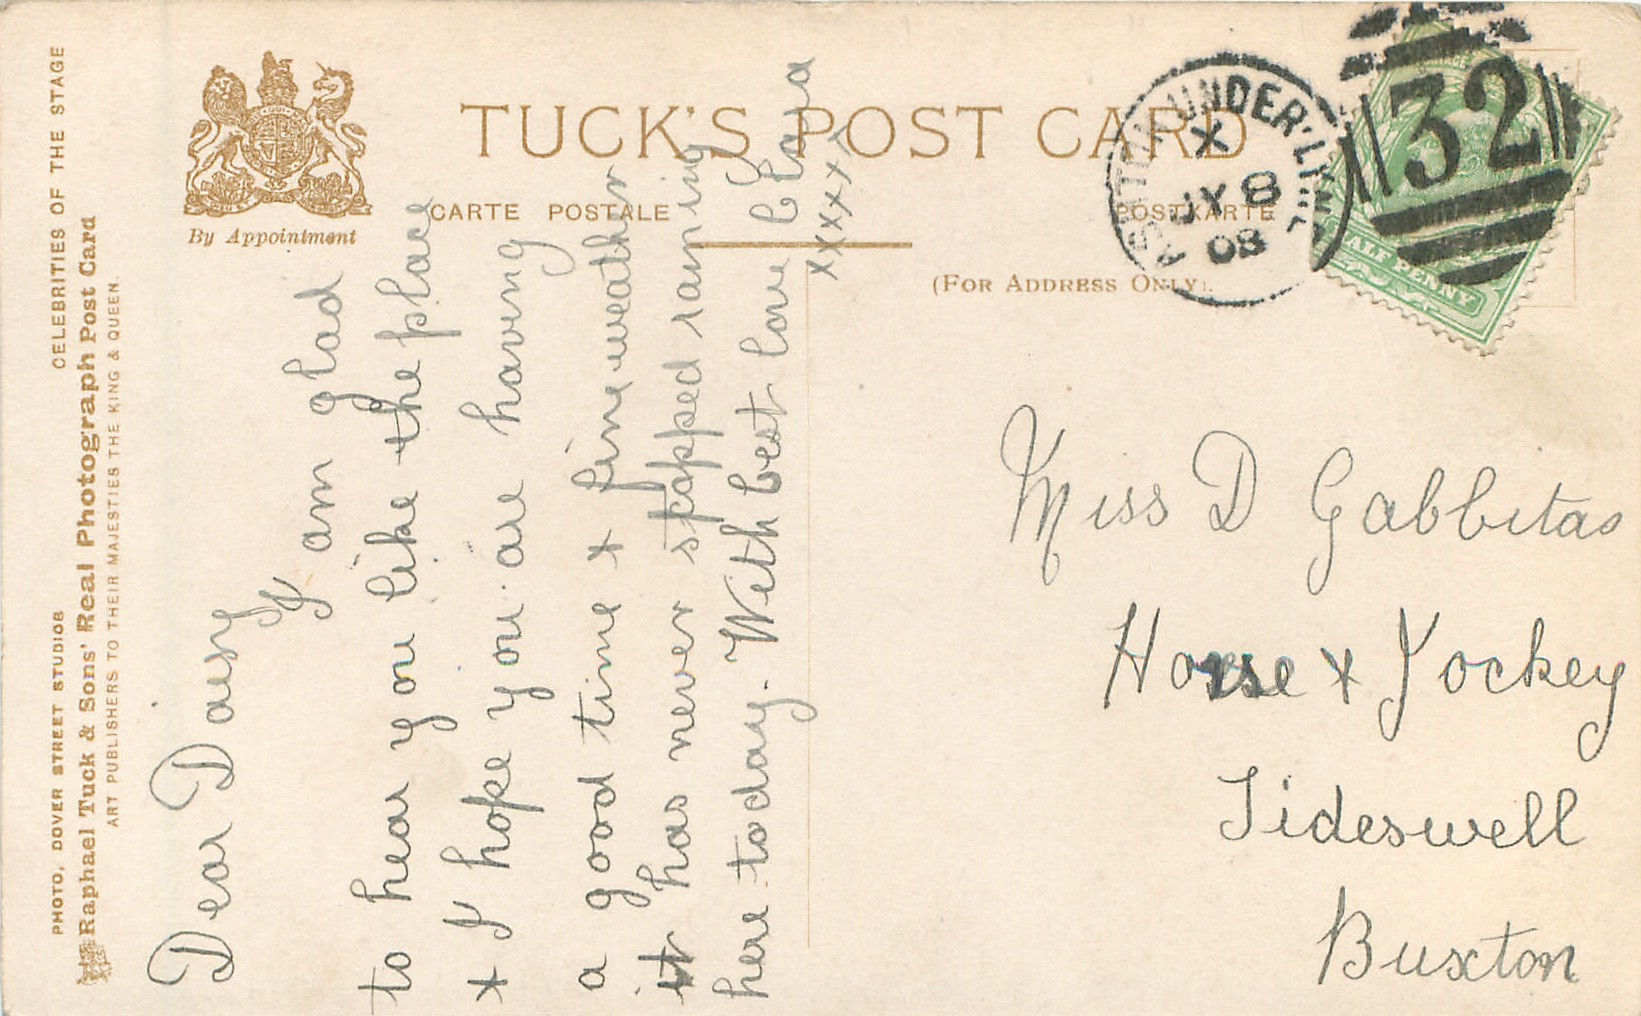 PHOTO, DOVER STREET STUDIOS CELEBRITIES OF THE STAGE
Raphael Tuck & Sons' Real Photograph Post Card
ART PUBLISHERS TO THEIR MAJESTIES THE KING & QUEEN.
By Appointment
TUCK'S POST CARD
CARTE POSTALE
POSTKARTE
(FOR ADDRESS ONLY).
UNDER LYNE
X
JY 8
08
32
HALF PENNY
Dear Daisy
I am glad
to hear you like the place
+ I hope you are having
a good time + fine weather
it has never stopped raining
here to day. With best love Clara
xxxxx
Miss D Gabbitas
Horse + Jockey
Tideswell
Buxton